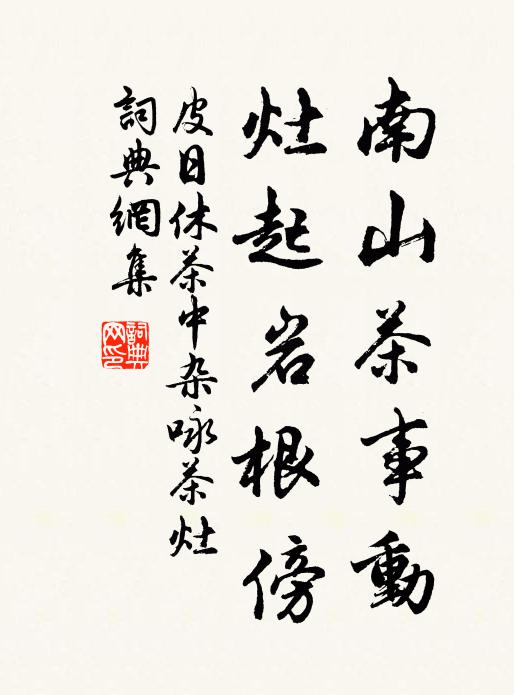 南山茶事動
灶起岩根傍
皮日休茶中杂咏茶灶
詞典網集
詞典网印